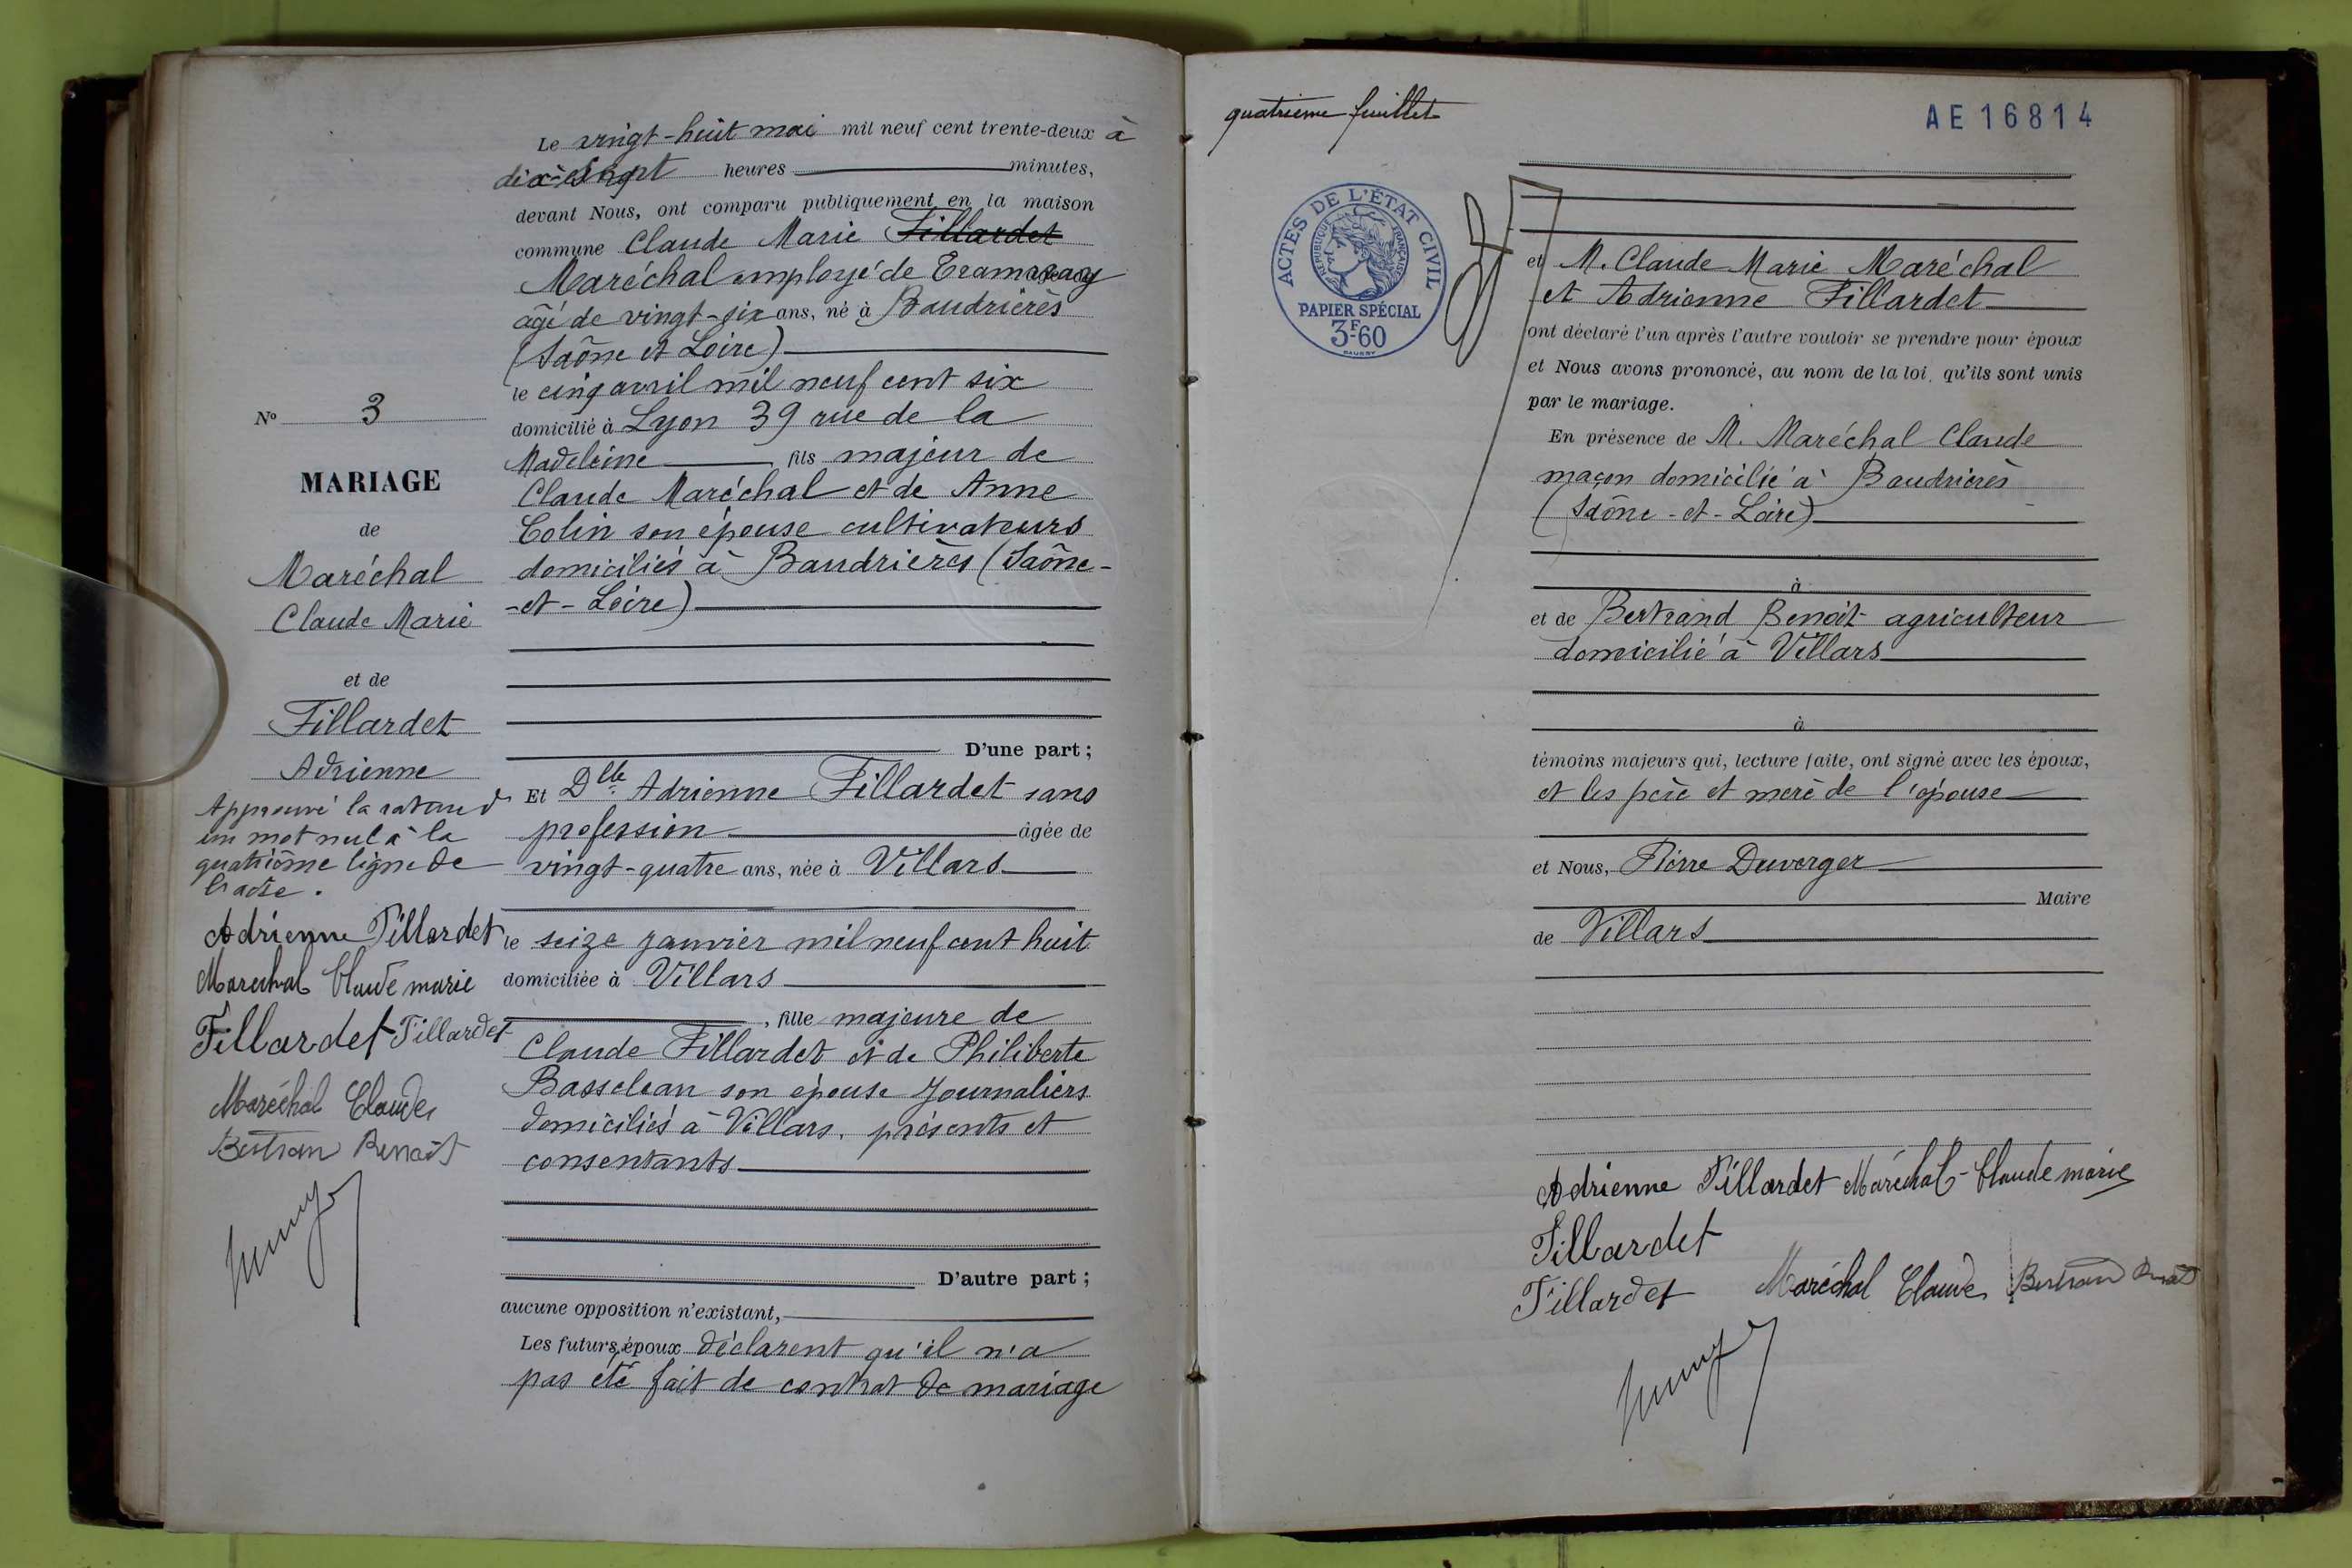 Le vingt-huit mai mil neuf cent trente-deux à
dix-sept heures minutes,
devant Nous, ont comparu publiquement en la maison
commune Claude Marie Fillardet
Maréchal employé de Tramway
âgé de vingt-six ans, né à Baudrières
(Saône et Loire)
le cinq avril mil neuf cent six
domicilié à Lyon 39 rue de la
Madeleine fils majeur de
Claude Maréchal et de Anne
Colin son épouse cultivateurs
domiciliés à Baudrières (Saône-
-et-Loire)
D'une part ;
Et Dlle Adrienne Fillardet sans
profession âgée de
vingt-quatre ans, née à Villars
le seize janvier mil neuf cent huit
domiciliée à Villars
, fille majeure de
Claude Fillardet et de Philiberte
Bassclean son épouse journaliers
domiciliés à Villars, présents et
consentants
D'autre part ;
aucune opposition n'existant,
Les futurs époux déclarent qu'il n'a
pas été fait de contrat de mariage
N° 3
MARIAGE
de
Maréchal
Claude Marie
et de
Fillardet
Adrienne
Approuvé la rature d
un mot nul à la
quatrième ligne de
l'acte.
Adrienne Fillardet
Marechal Claude marie
Fillardet Fillardet
Maréchal Claude
Bertran Benoît
quatrième feuillet
AE 16814
ACTES DE L'ÉTAT CIVIL
RÉPUBLIQUE FRANÇAISE
PAPIER SPÉCIAL
3F-60
et M. Claude Marie Maréchal
et Adrienne Fillardet
ont déclaré l'un après l'autre vouloir se prendre pour époux
et Nous avons prononcé, au nom de la loi, qu'ils sont unis
par le mariage.
En présence de M. Maréchal Claude
maçon domicilié à Baudrières
(Saône-et-Loire)
à
et de Bertrand Benoît agriculteur
domicilié à Villars
à
témoins majeurs qui, lecture faite, ont signé avec les époux,
et les père et mère de l'épouse
et Nous, Pierre Duverger
Maire
de Villars
Adrienne Fillardet Maréchal-Claude marie
Fillardet
Fillardet Maréchal Claude Bertrand Benoît